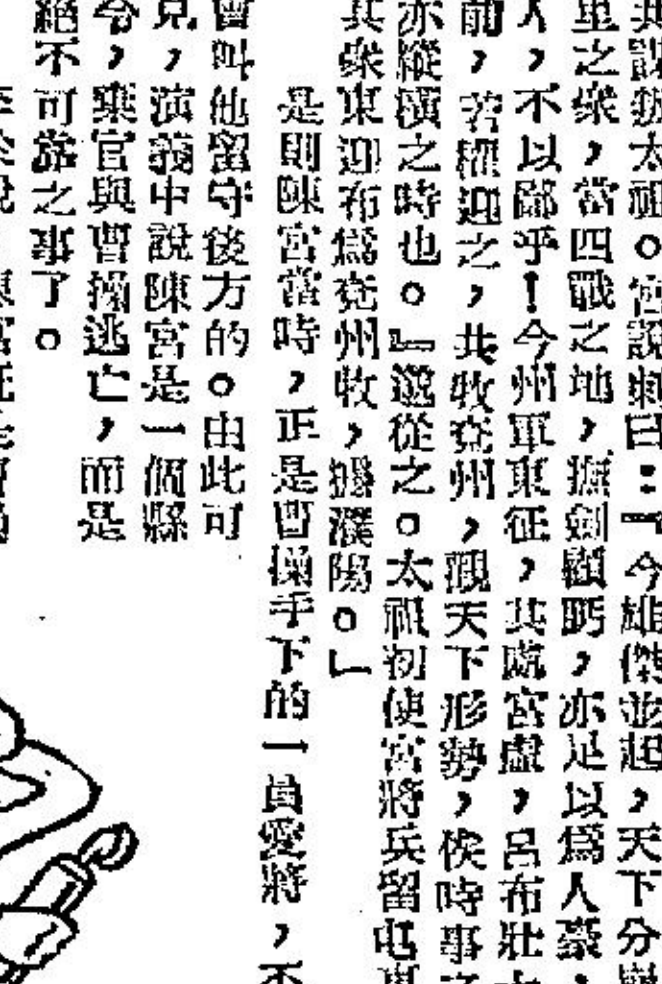 共謀叛太祖。宮說邈曰：『今雄傑並起，天下分崩
里之衆，當四戰之地，撫劍顧盼，亦足以爲人豪，
人，不以鄙乎！今州軍東征，其處空虛，呂布壯士
前，若權迎之，共牧兗州，觀天下形勢，俟時事之
亦縱橫之時也。』邈從之。太祖初使宮將兵留屯東
其衆東迎布爲兗州牧，據濮陽。」
是則陳宮當時，正是曹操手下的一員愛將，不
曾叫他留守後方的。由此可
見，演義中說陳宮是一個縣
令，棄官與曹操逃亡，而是
絕不可靠之事了。